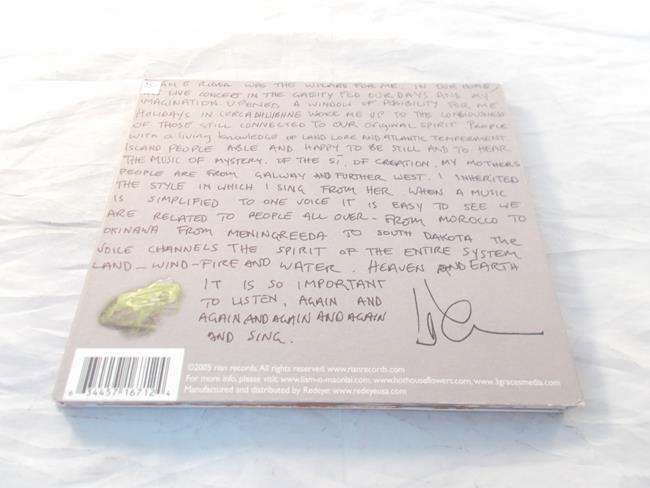 RIADA WAS THE WIZARD FOR ME. IN OUR HOME
LIVE CONCERT IN THE GAEITY FED OUR DAYS AND MY
IMAGINATION. UPENED A WINDOW OF POSIBILITY FOR ME
HOLIDAYS IN CORCA DHUIBHNE WOKE ME UP TO THE
OF THOSE STILL CONNECTED TO OUR ORIGINAL SPIRIT PEOPLE
WITH A LIVING KNOWLEDGE OF LAND LORE AND ATLANTIC TEMPERAMENT.
ISLAND PEOPLE ABLE AND HAPPY TO BE STILL AND TO HEAR
THE MUSIC OF MYSTERY. OF THE SÍ, OF CREATION. MY MOTHERS
PEOPLE ARE FROM GALWAY AND FURTHER WEST. I INHERITED
THE STYLE IN WHICH I SING FROM HER. WHEN A MUSIC
IS SIMPLIFIED TO ONE VOICE IT IS EASY TO SEE WE
ARE RELATED TO PEOPLE ALL OVER - FROM MOROCCO TO
OKINAWA FROM MENINGREEDA TO SOUTH DAKOTA THE
VOICE CHANNELS THE SPIRIT OF THE ENTIRE SYSTEM
LAND - WIND - FIRE AND WATER. HEAVEN AND EARTH
IT IS SO IMPORTANT
TO LISTEN, AGAIN AND
AGAIN AND AGAIN AND AGAIN
AND SING.
©2005 rian records. All rights reserved. www.rianrecords.com
For more info, please visit: www.liam-o-maonlai.com, www.hothouseflowers.com, www.3gracesmedia.com
Manufactured and distributed by Redeye: www.redeyeusa.com
6 34457 16712 4